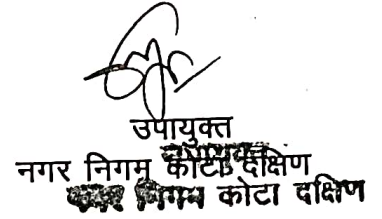 उपायुक्त
नगर निगम कोटा दक्षिण
निगम कोटा दक्षिण